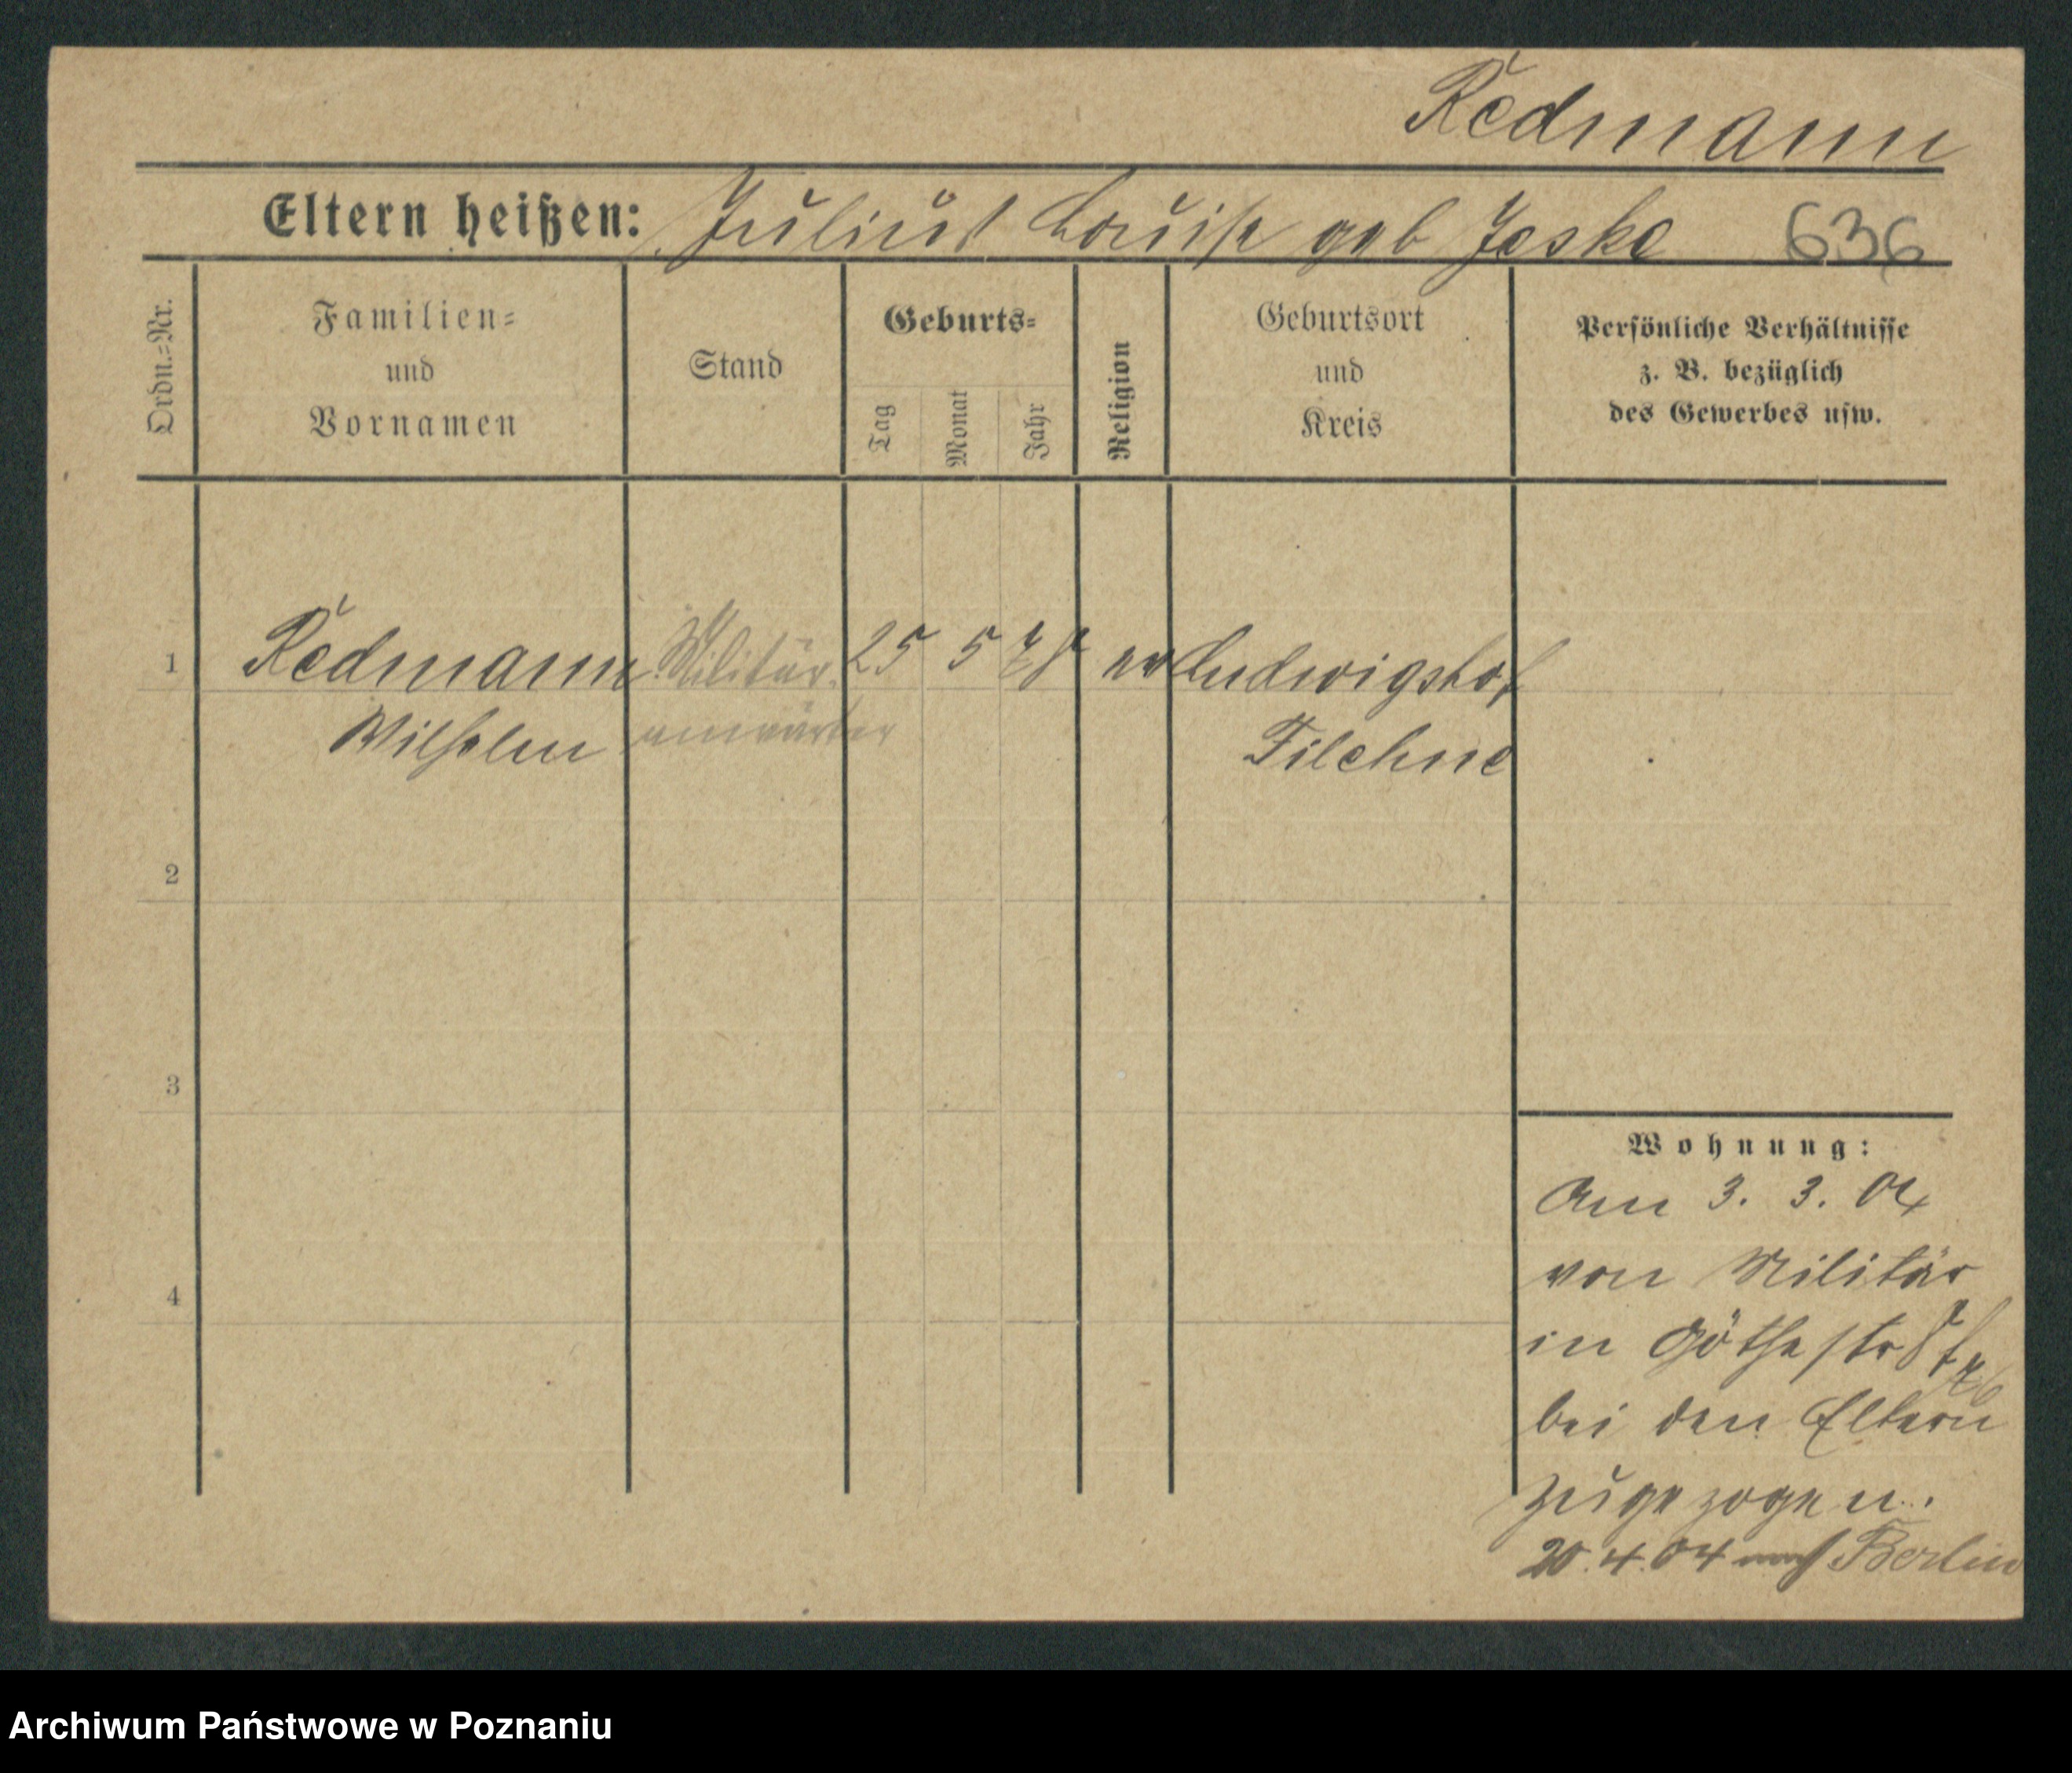 Redmann
Eltern heißen: Julius Louise geb Jeske 636
Ordn.=Nr.
Familien=
und
Vornamen
Stand
Geburts=
Tag
Monat
Jahr
Religion
Geburtsort
und
Kreis
Persönliche Verhältnisse
z. B. bezüglich
des Gewerbes usw.
1 Redmann Militär 25 5 78 ev Ludwigshof
Wilhelm anwärter Filehne
2
3
4
Wohnung:
Am 3. 3. 04
von Militär
in Göthestr
bei den Eltern
zugezogen.
20.4.04 nach Berlin
Archiwum Państwowe w Poznaniu